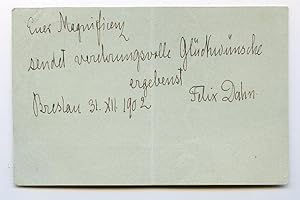 Euer Magnificenz
sendet verehrungsvolle Glückwünsche
ergebenst
Breslau 31. XII 1902 Felix Dahn.